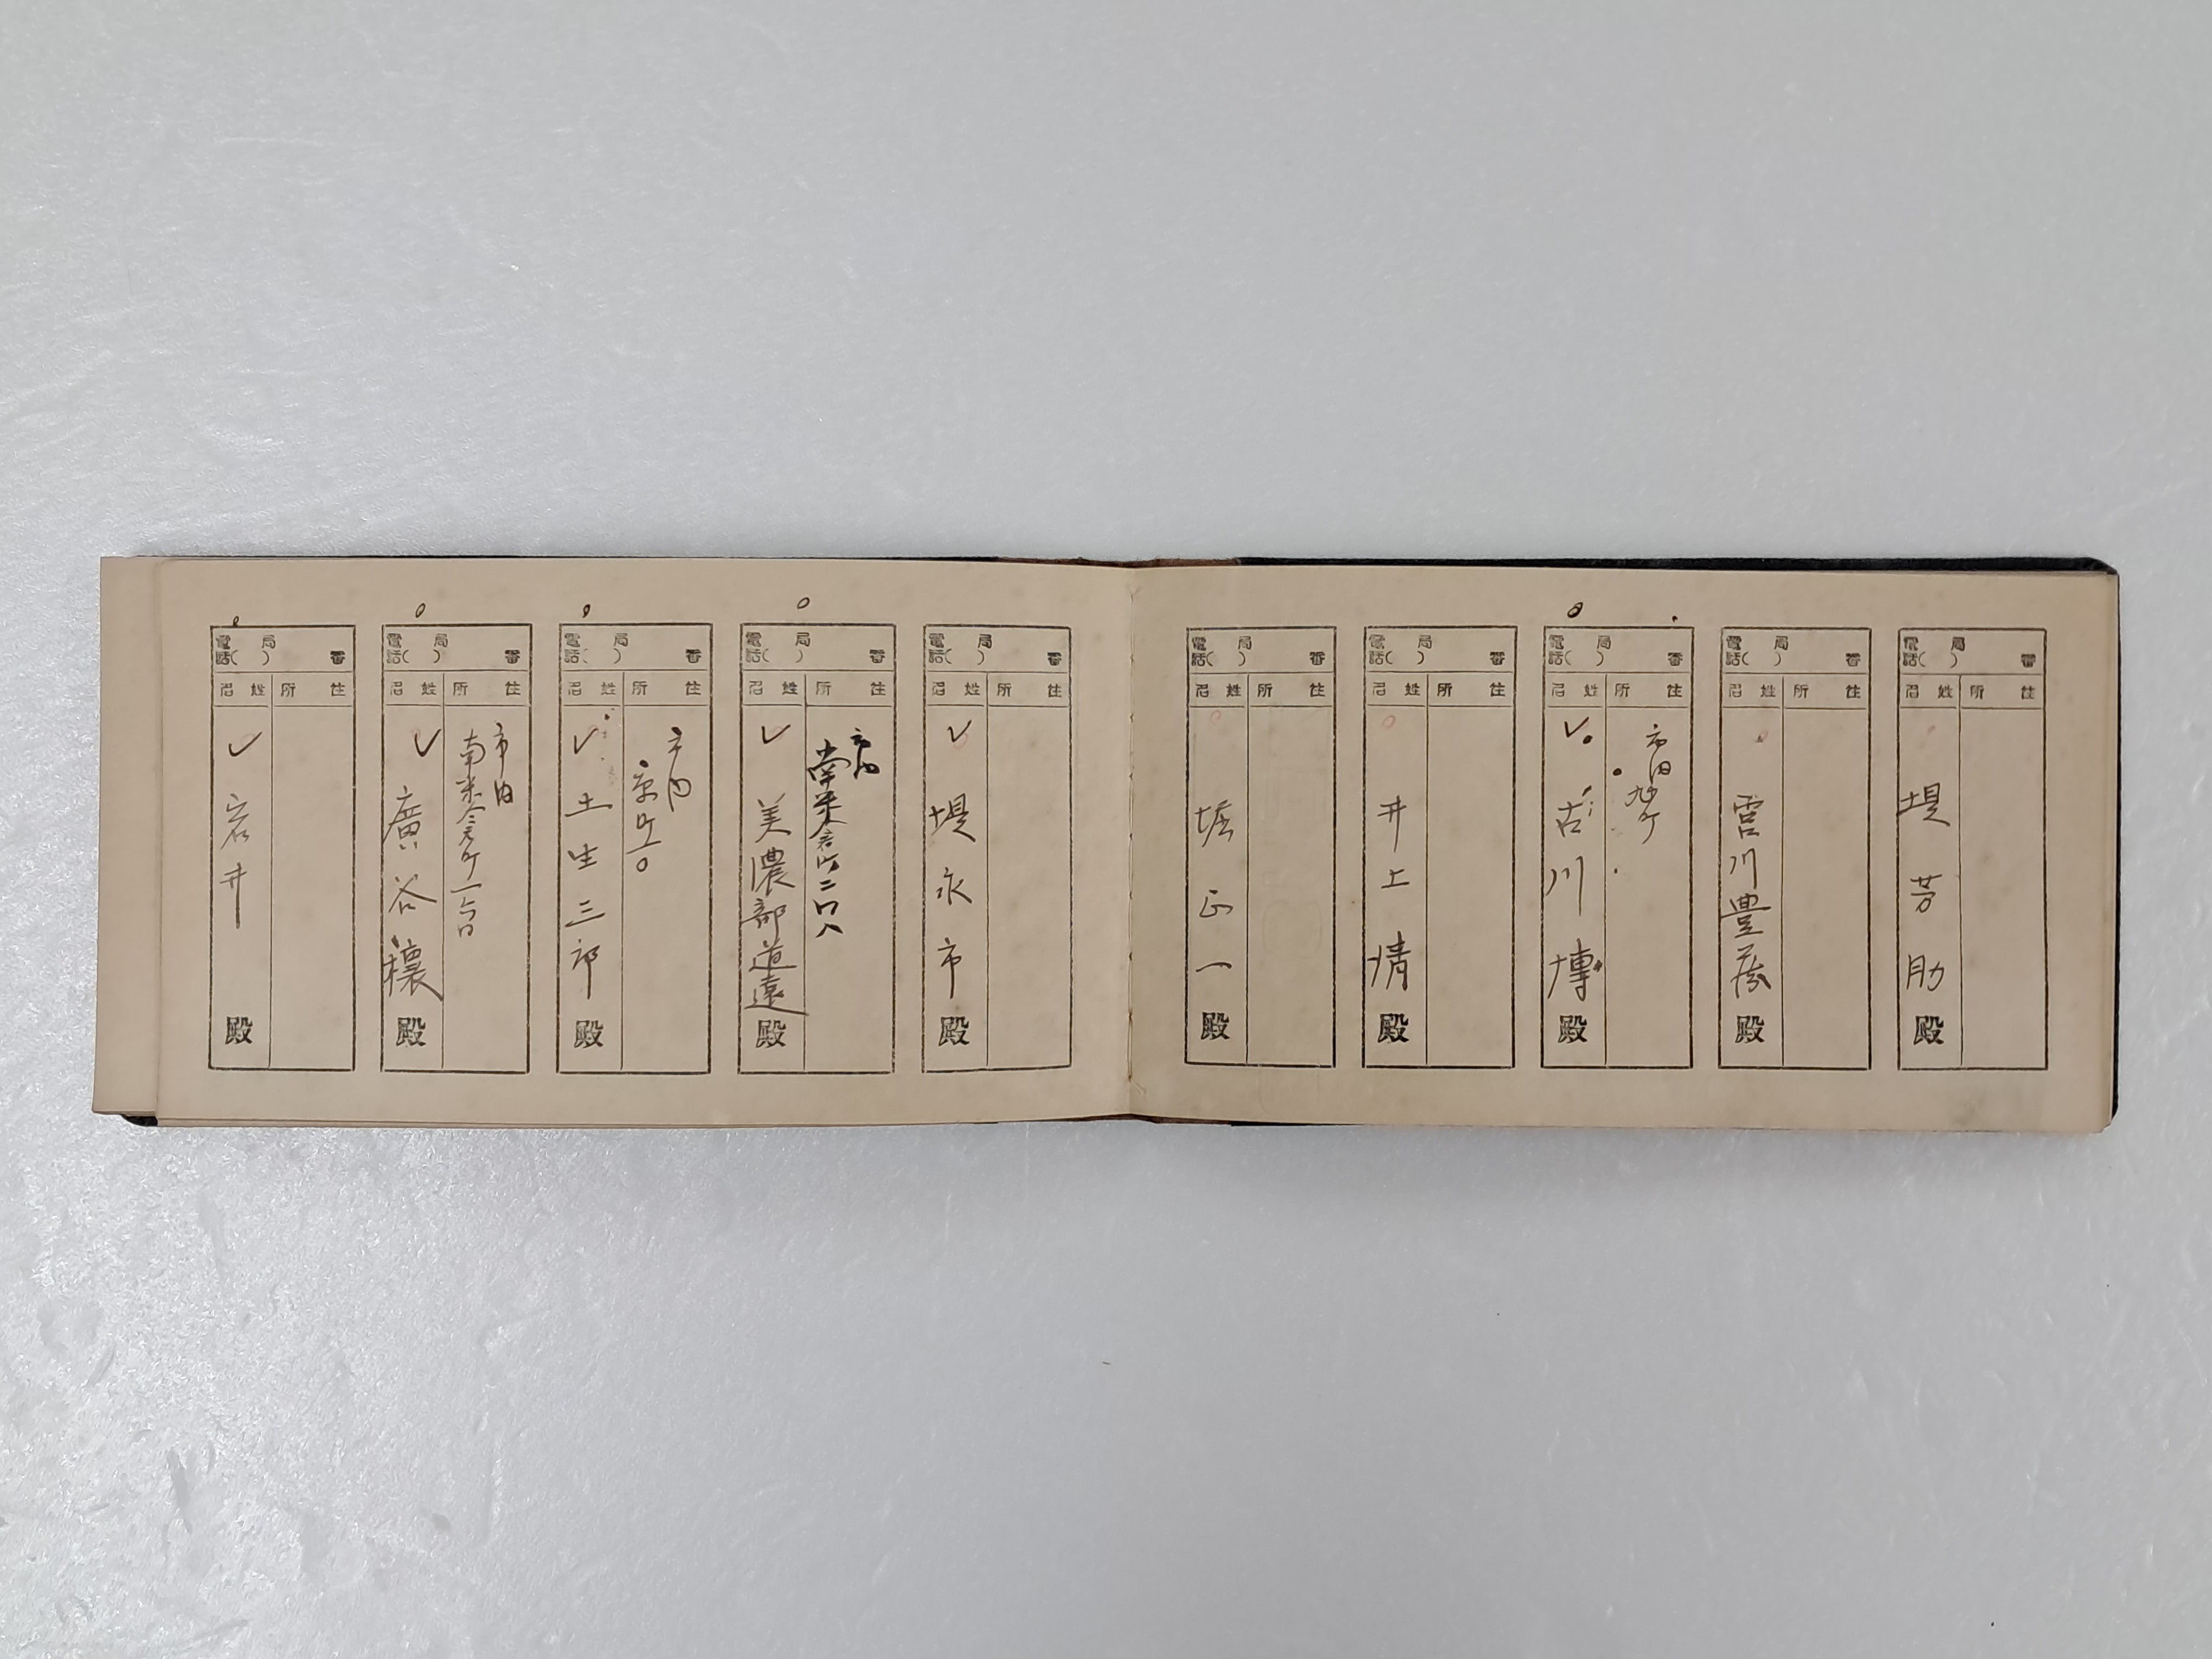 電話( )局 番
住所 姓名
堤芳助殿
電話( )局 番
住所 姓名
宮川豊蔵殿
電話( )局 番
住所 姓名
市内
旭町
古川博殿
電話( )局 番
住所 姓名
井上清殿
電話( )局 番
住所 姓名
正一殿
電話( )局 番
住所 姓名
堤永市殿
電話( )局 番
住所 姓名
市内
南米倉町二ロ八
美濃部道遠殿
電話( )局 番
住所 姓名
市内
土生三郎殿
電話( )局 番
住所 姓名
市内
南米倉町一
廣谷穰殿
電話( )局 番
住所 姓名
岩井殿